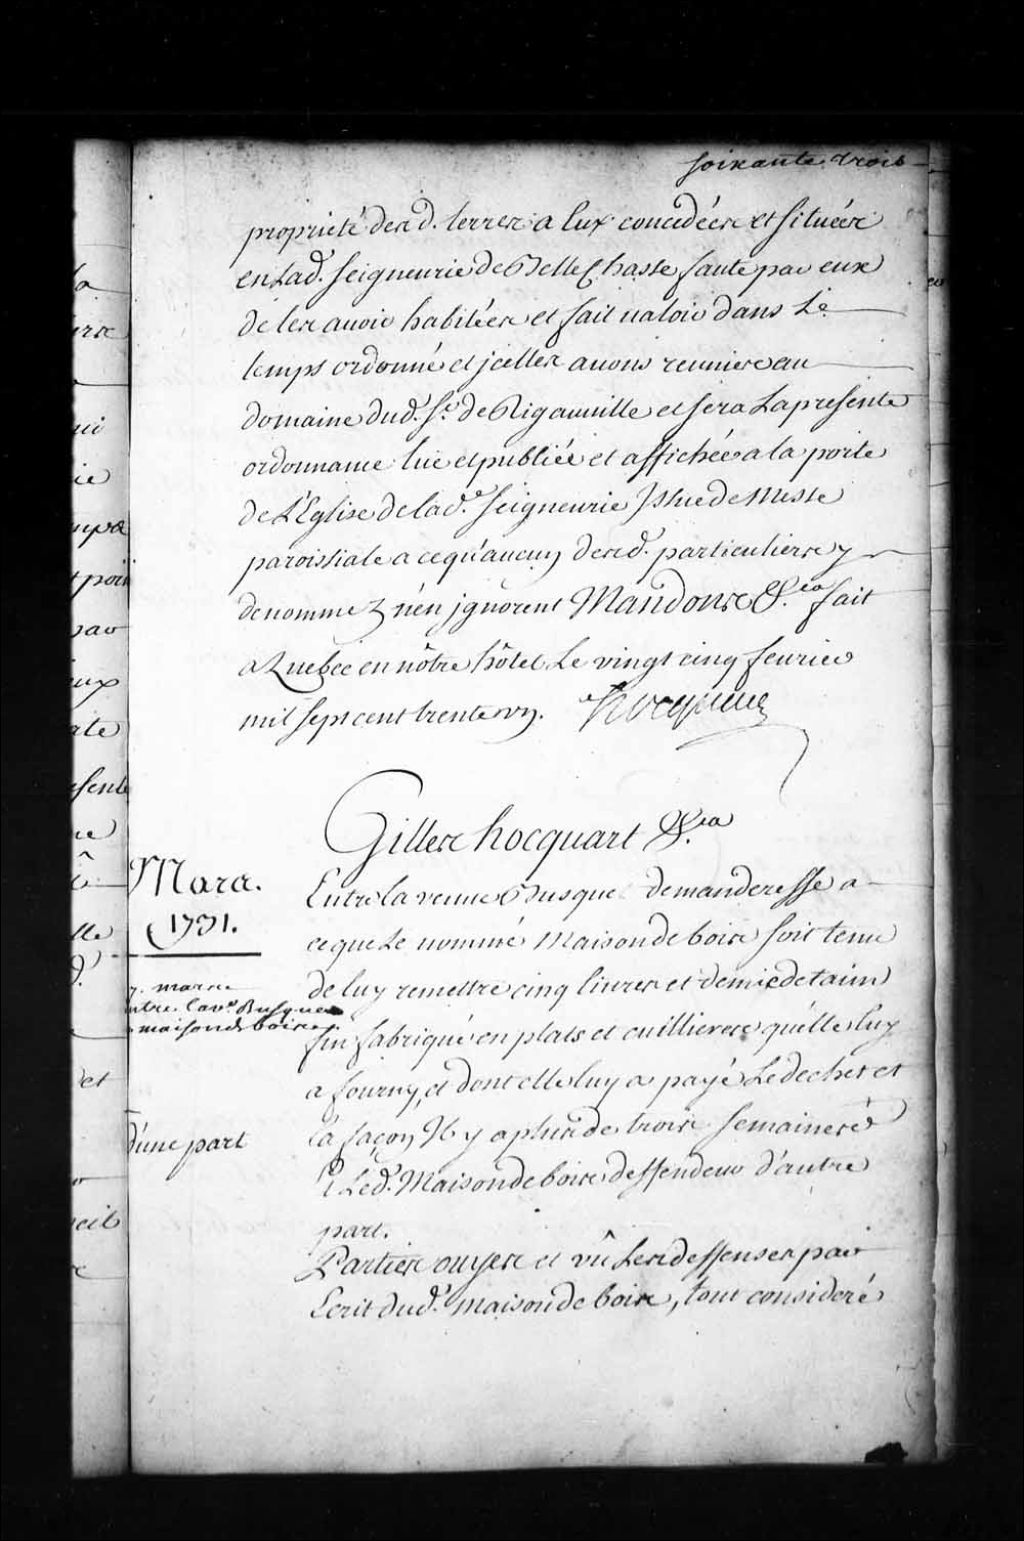 soixante trois
proprieté desd. terres a lux concedées et situées
en Lad. seigneurie de Belle Chasse faute par eux
de les avoir habitées et fait valoir dans Le
temps ordonné et jcelles avons reunies au
domaine dud. Sr. de Rigauville et sera La presente
ordonnance luë et publiée et affichée a la porte
de L'Eglise de lad.e seigneurie Jssue de Messe
paroissiale a ce qu'aucun desd. particuliers y
denommez n'en jgnorent Mandons &.ca fait
a Quebec en nôtre hôtel Le vingt cinq feurier
mil sept cent trente un. Hocquart
Gilles hocquart &.ca
Mars.
1731.
Entre la veuve Busque demanderesse a
ce que Le nommé Maison de bois soit tenu
de luy remettre cinq livres et demie detaim
fin fabriqué en plats et cuillieres qu'elle luy
a fourny, et dont elle luy a payé Le dechet et
la façon Jl y a plus de trois semaines
d'une part
Et Led. Maison de bois deffendeur d'autre
part.
marse
ntre la ve. Busque
maison de bois
Parties ouyes et vû Les deffenses par
Ecrit dud. Maison de bois, tout consideré